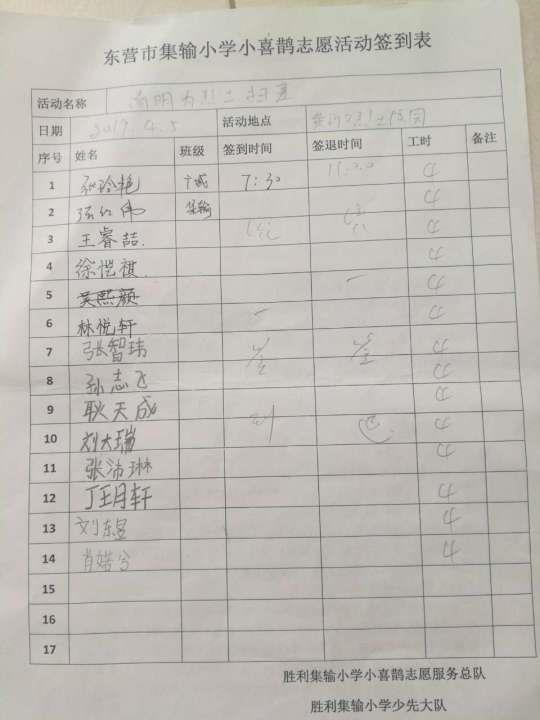 东营市集输小学小喜鹊志愿活动签到表
活动名称 清明为烈士扫墓
日期 2017.4.5 活动地点
序号 姓名 班级 签到时间 签退时间 工时 备注
1 张玲艳 7:30 4
2 张红伟 集输 4
3 王睿喆. 4
4 徐恺祺. 4
5 吴熙颜 4
6 林悦轩 4
7 张智玮 4
8 孙志飞 4
9 耿天成 4
10 刘大瑞 4
11 张沛琳 4
12 丁玉月轩 4
13 刘东昱 4
14 肖皓兮 4
15
16
17
胜利集输小学小喜鹊志愿服务总队
胜利集输小学少先大队